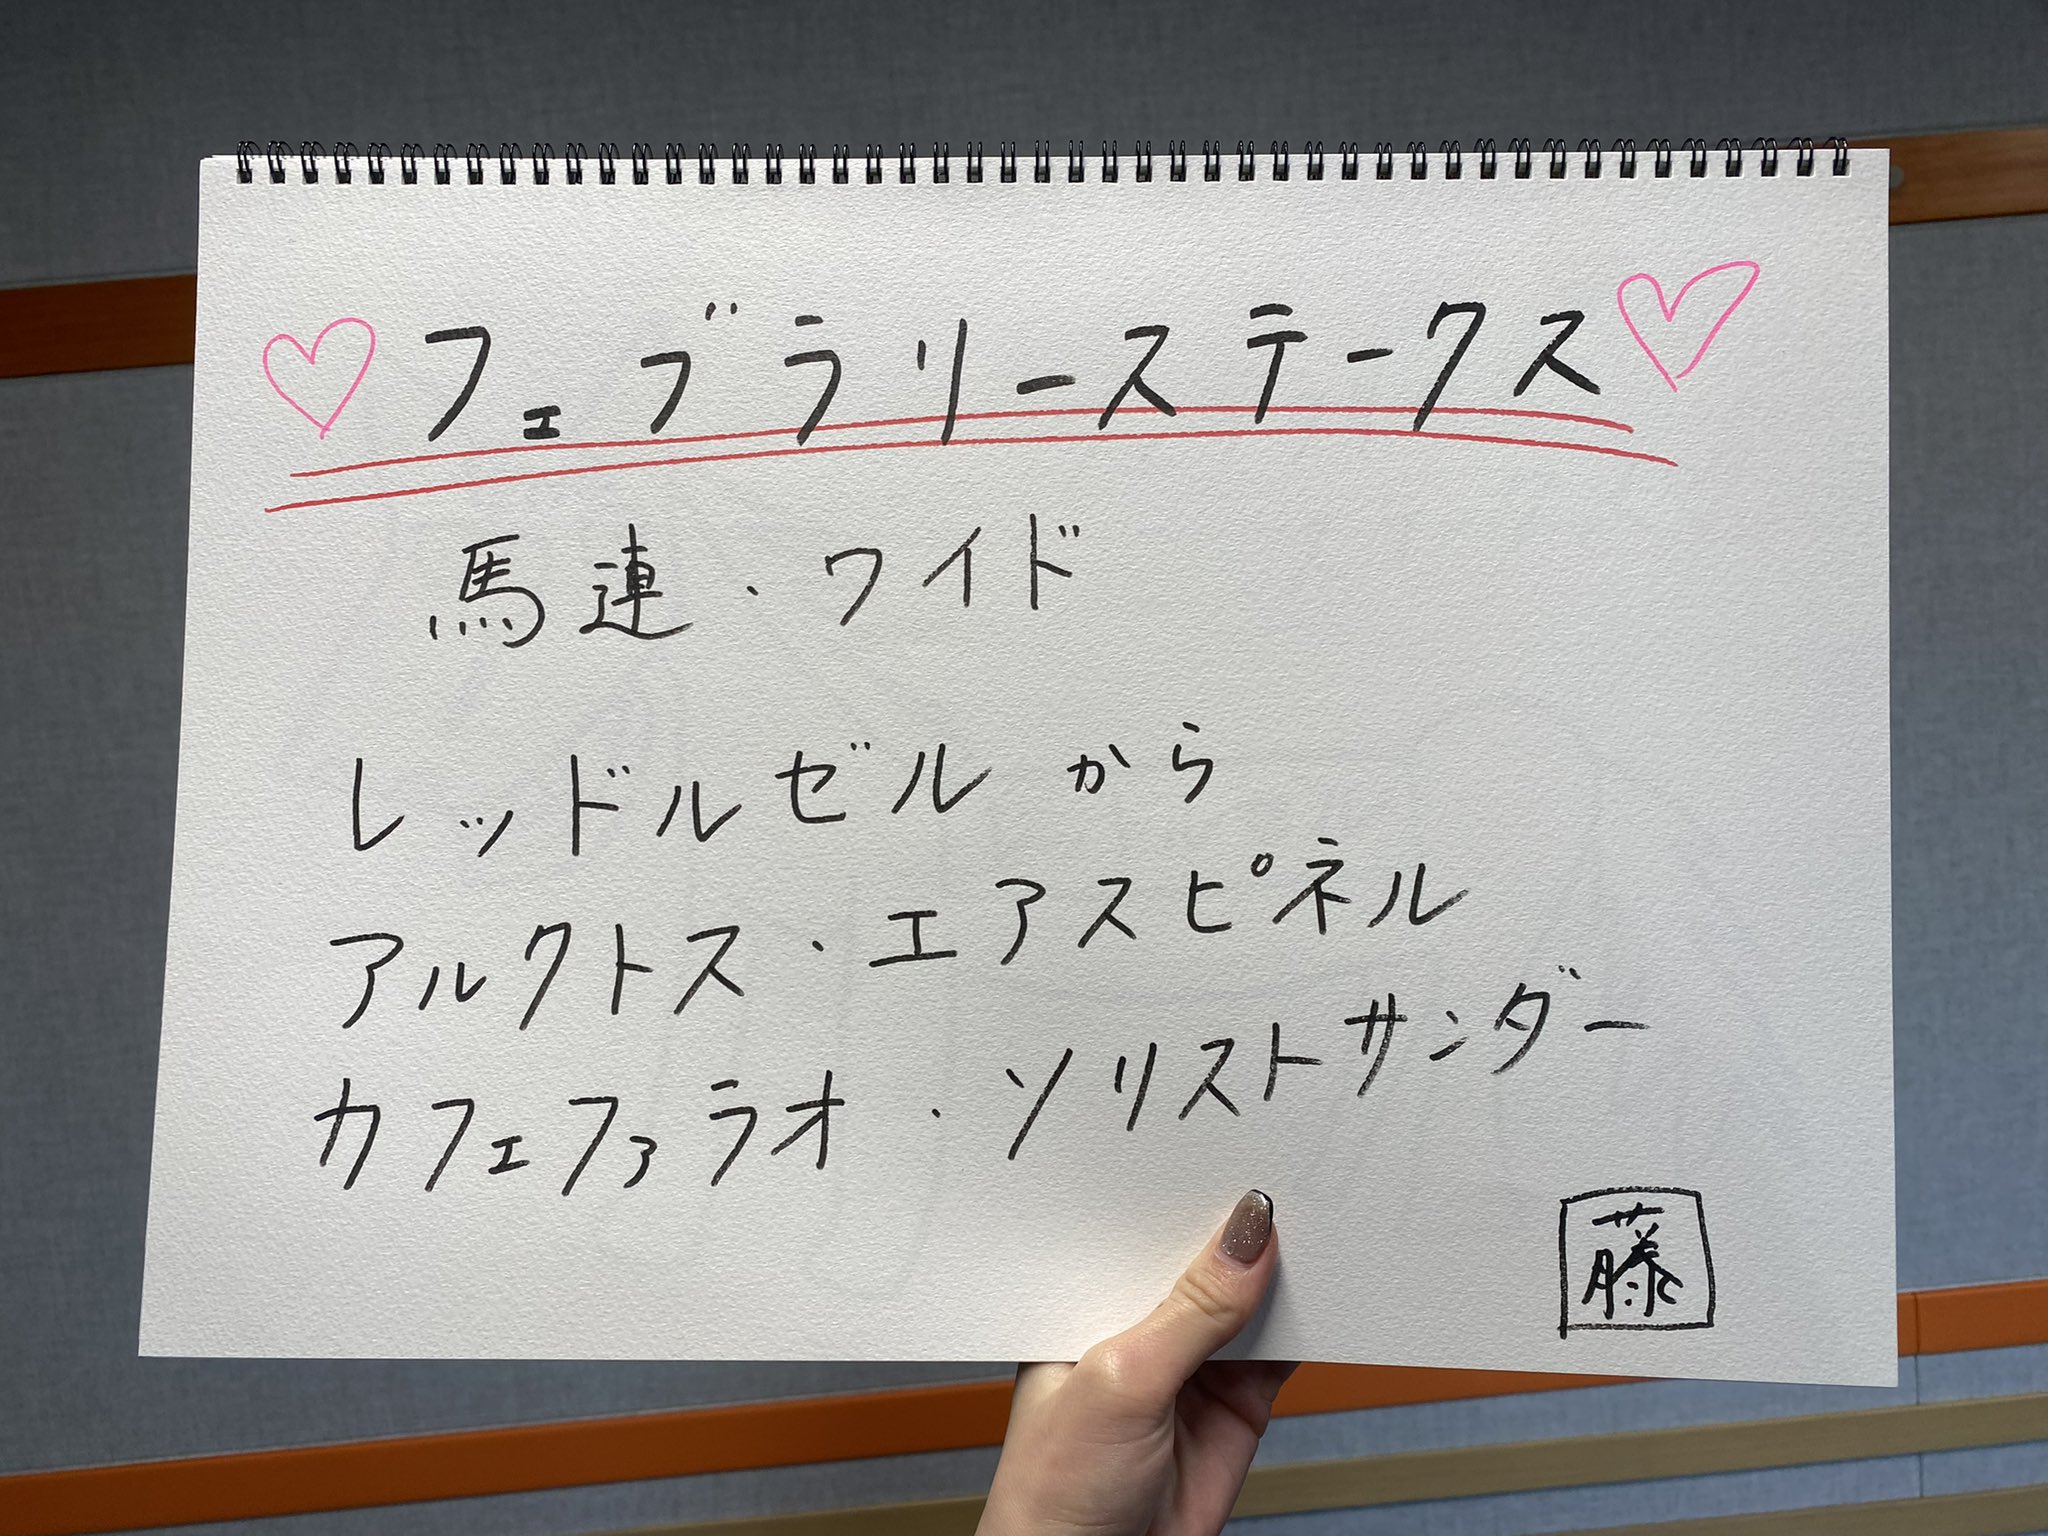 フェブラリーステークス
馬連・ワイド
レッドルゼルから
アルクトス・エアスピネル
カフェファラオ・ソリストサンダー
藤